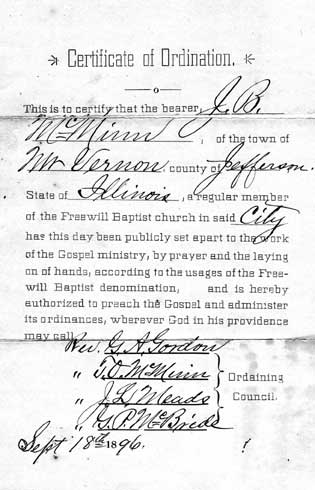 Certificate of Ordination.
This is to certify that the bearer, J. B.
McMinn, of the town
of Mt Vernon county of Jefferson.
State of Illinois, a regular member
of the Freewill Baptist church in said City
has this day been publicly set apart to the work
of the Gospel ministry, by prayer and the laying
on of hands, according to the usages of the Free-
will Baptist denomination, and is hereby
authorized to preach the Gospel and administer
its ordinances, wherever God in his providence
may call.
Rev. G. A. Gordon
" T. O. McMinn
" J. L. Meads
" G. P. McBride
Ordaining
Council.
Sept 18th 1896.